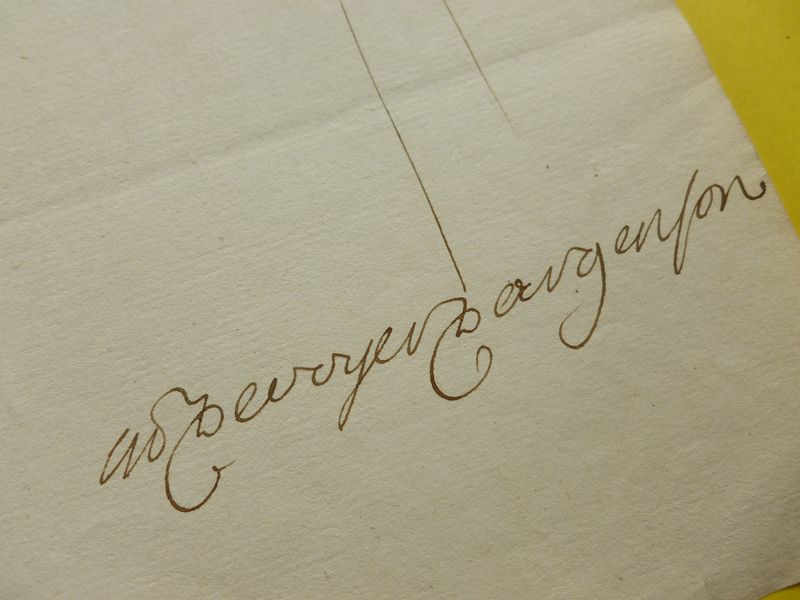 De voyer Dargenson